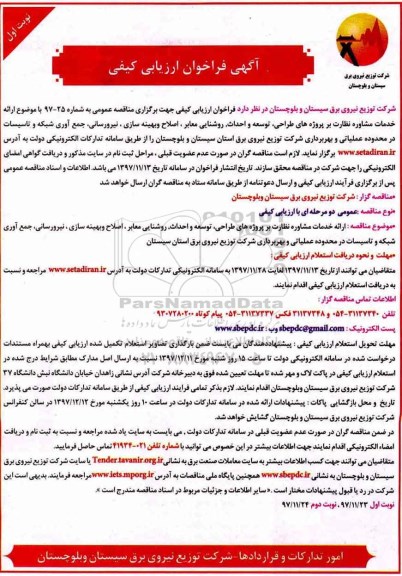 نوبت اول
شرکت توزیع نیروی برق
سیستان و بلوچستان
آگهی فراخوان ارزیابی کیفی
شرکت توزیع نیروی برق سیستان و بلوچستان در نظر دارد فراخوان ارزیابی کیفی جهت برگزاری مناقصه عمومی به شماره ۲۵-۹۷ با موضوع ارائه
خدمات مشاوره نظارت بر پروژه های طراحی، توسعه و احداث، روشنایی معابر ، اصلاح وبهینه سازی ، نیرورسانی، جمع آوری شبکه و تاسیسات
در محدوده عملیاتی و بهربرداری شرکت توزیع نیروی برق استان سیستان و بلوچستان را از طریق سامانه تدارکات الکترونیکی دولت به آدرس
www.setadiran.ir برگزار نماید. لازم است مناقصه گران در صورت عدم عضویت قبلی ، مراحل ثبت نام در سایت مذکور و دریافت گواهی امضای
الکترونیکی را جهت شرکت در مناقصه محقق سازند. تاریخ انتشار فراخوان در سامانه تاریخ ۱۳۹۷/۱۱/۱۳ می باشد. اطلاعات و اسناد مناقصه عمومی
پس از برگزاری فرآیند ارزیابی کیفی و ارسال دعوتنامه از طریق سامانه ستاد به مناقصه گران ارسال خواهد شد
•مناقصه گزار : شرکت توزیع نیروی برق سیستان وبلوچستان
•نوع مناقصه :عمومی دو مرحله ای با ارزیابی کیفی
•موضوع مناقصه : ارائه خدمات مشاوره نظارت بر پروژه های طراحی، توسعه و احداث، روشنایی معابر ، اصلاح وبهینه سازی ، نیرورسانی، جمع آوری
شبکه و تاسیسات در محدوده عملیاتی و بهربرداری شرکت توزیع نیروی برق استان سیستان
•مهلت و نحوه دریافت استعلام ارزیابی کیفی :
متقاضیان می توانند از تاریخ ۱۳۹۷/۱۱/۱۳ لغایت ۱۳۹۷/۱۱/۲۸ به سامانه الکترونیکی تدارکات دولت به آدرس www.setadiran.ir مراجعه و نسبت
به دریافت استعلام ارزیابی کیفی اقدام نمایند.
اطلاعات تماس مناقصه گزار :
تلفن ۳۱۱۳۷۳۴۰-۰۵۴ و ۳۱۱۳۷۳۴۸ فکس ۳۱۱۳۷۳۳۷-۰۵۴ پیام کوتاه
پست الکترونیک : sbepdc@gmail.com وب : www.sbepdc.ir
مهلت تحویل استعلام ارزیابی کیفی : پیشنهاددهندگان می بایست ضمن بارگذاری تصاویر استعلام تکمیل شده ارزیابی کیفی بهمراه مستندات
درخواست شده در سامانه الکترونیکی دولت تا ساعت ۱۵ روز شنبه مورخ نسبت به ارسال اصل مدارک مطابق شرایط درج شده در
استعلام ارزیابی کیفی در پاکت لاک و مهر شده تا مهلت تعیین شده فوق به دبیرخانه شرکت آدرس نشانی زاهدان خیابان دانشگاه نبش دانشگاه ۳۷
شرکت توزیع نیروی برق سیستان وبلوچستان اقدام نمایند. لازم بذکر تمامی فرایند ارزیابی کیفی از طریق سامانه تدارکات دولت صورت می پذیرد.
تاریخ و محل بازگشایی پاکات : پیشنهادات ارائه شده در سامانه تدارکات دولت در ساعت ۱۰ روز یکشنبه مورخ ۱۳۹۷/۱۲/۱۲ در سالن کنفرانس
شرکت توزیع نیروی برق سیستان و بلوچستان گشایش خواهد شد.
در ضمن مناقصه گران در صورت عدم عضویت قبلی در سامانه تدارکات دولت ، می بایست به سایت یاد شده مراجعه و نسبت به ثبت نام و دریافت
امضاء الکترونیکی اقدام نمایند جهت اطلاعات بیشتر در این خصوص می توانید با شماره تلفن ۰۲۱-۴۱۹۳۴ تماس حاصل فرمایید.
متقاضیان می توانند جهت کسب اطلاعات بیشتر به سایت معاملات صنعت برق به نشانی Tender.tavanir.org.ir یا سایت شرکت توزیع نیروی برق
سیستان و بلوچستان به نشانی www.sbepdc.ir همچنین پایگاه ملی مناقصات به آدرس www.iets.mporg.ir مراجعه فرمایند. بدیهی است این
شرکت در رد یا قبول پیشنهادات مختار است. « سایر اطلاعات و جزئیات مربوط در اسناد مناقصه مندرج است ».
نوبت اول ۹۷/۱۱/۲۳ ، نوبت دوم ۹۷/۱۱/۲۴
امور تدارکات و قراردادها -شرکت توزیع نیروی برق سیستان وبلوچستان